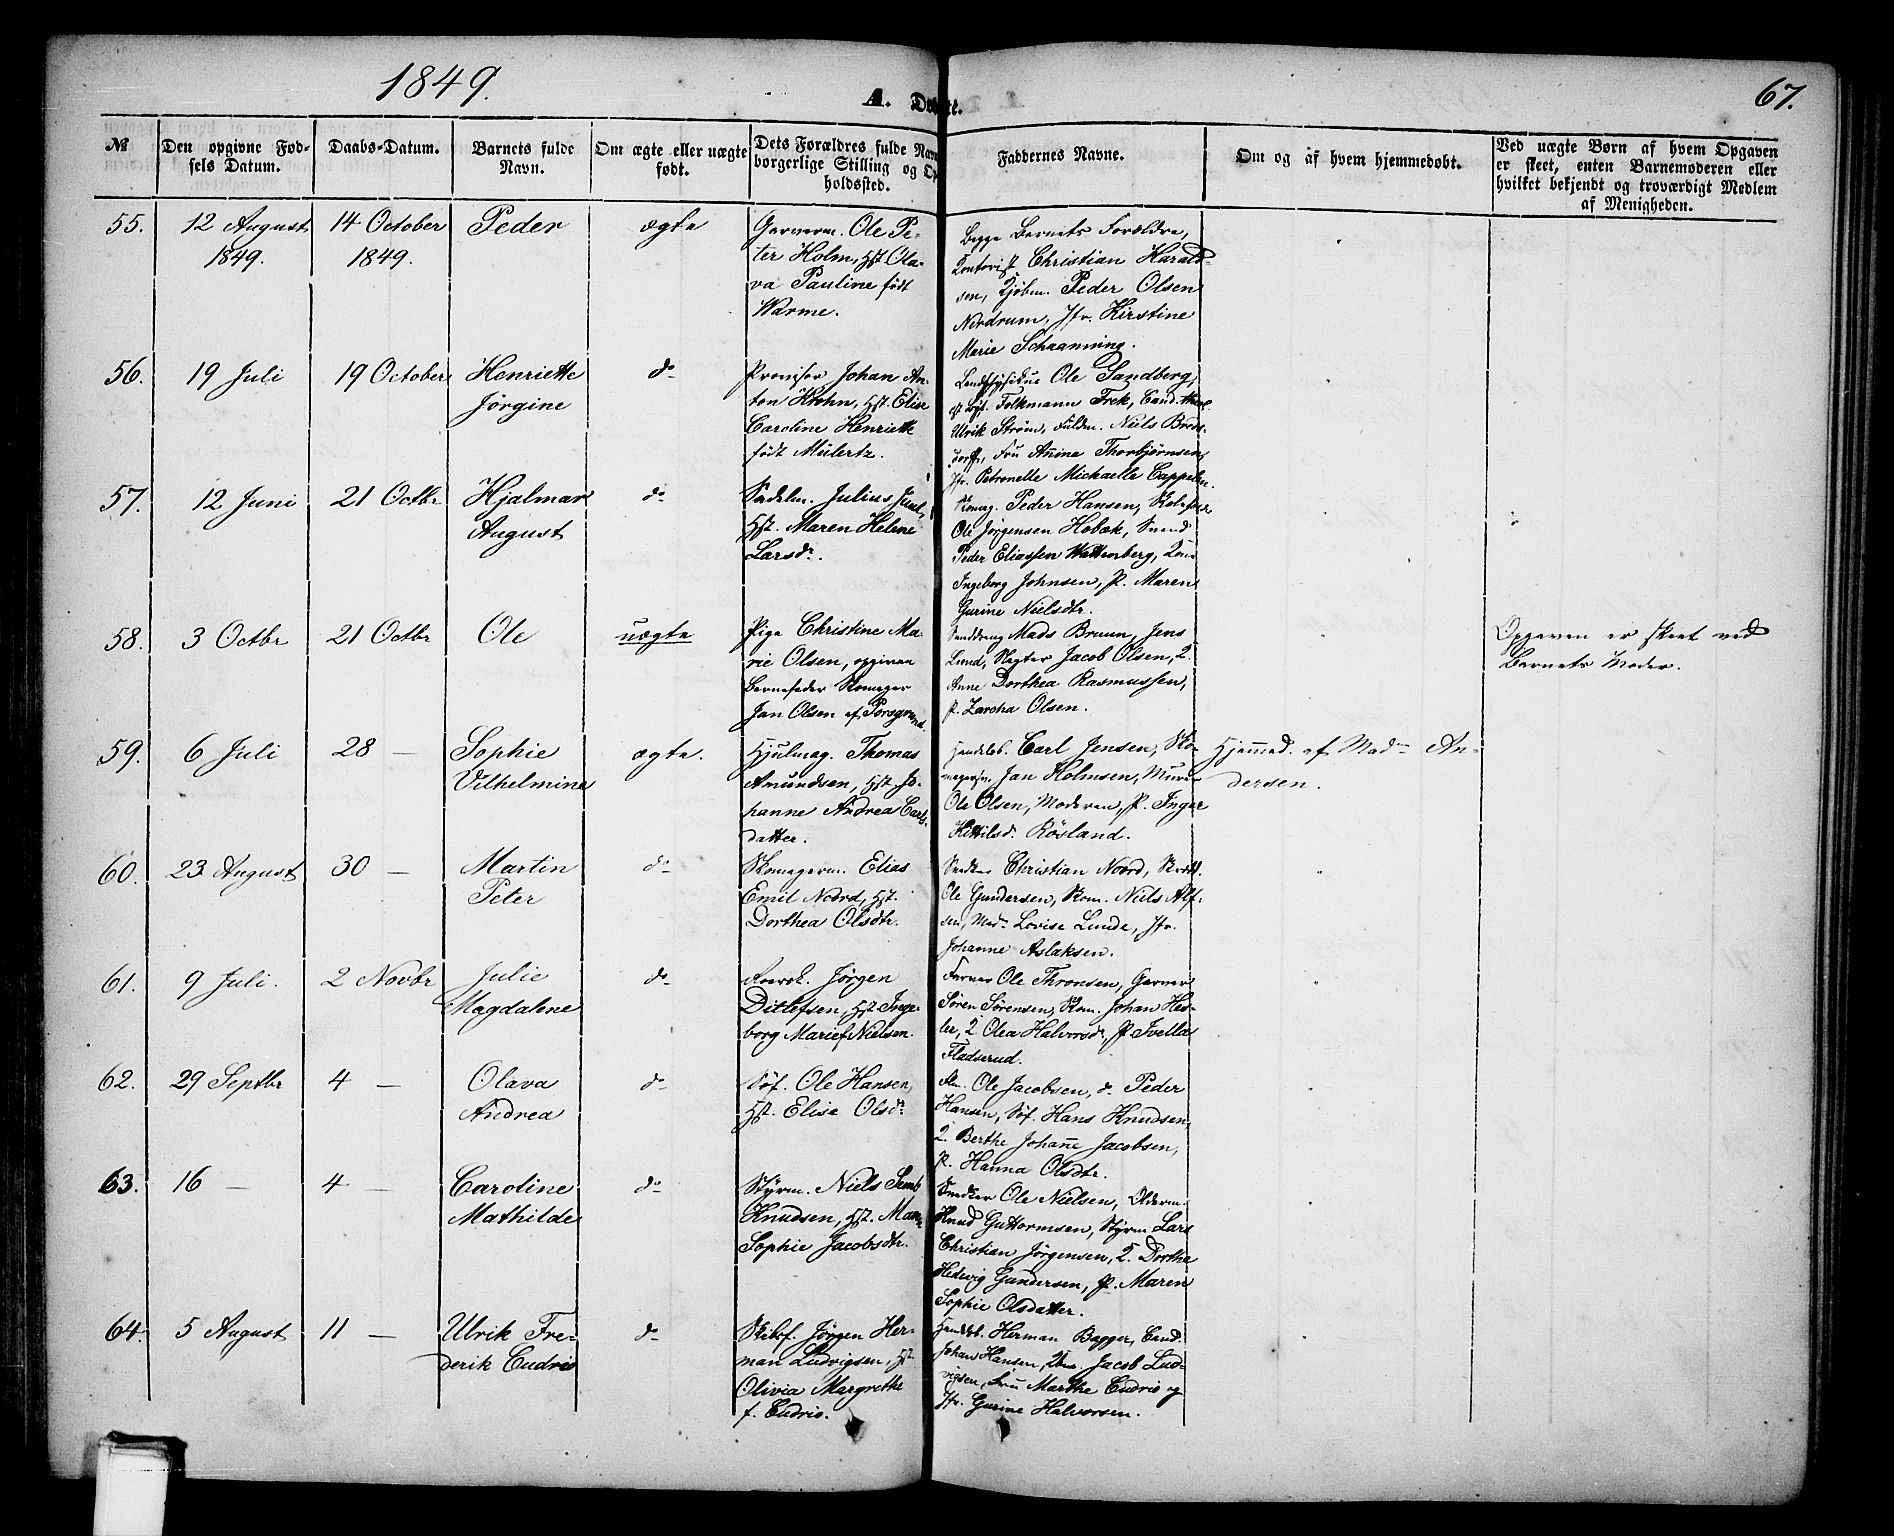 1849.
A. Døbte.
67.
№
Den opgivne Fød-
sels Datum.
Daabs-Datum.
Barnets fulde
Navn.
Om ægte eller uægte
født.
Dets Forældres fulde Navn
borgerlige Stilling og Op
holdssted.
Faddernes Navne.
Om og af hvem hjemmedøbt.
Ved uægte Børn af hvem Opgaven
er skeet, enten Barnemoderen eller
hvilket bekjendt og troværdigt Medlem
af Menigheden.
55.
12 August
1849.
14 October
1849.
Peder
ægte
Garverm. Ole Pe-
ter Holm, Hst. Ola-
va Pauline født
Warme.
Begge Barnets Forældre,
Kontorist Christian Harald-
sen, Kjøbm. Peder Olsen
Nordrum, Jfr. Kirstine
Marie Schaanning.
56.
19 Juli
19 October
Henriette
Jörgine
do
Provisor Johan An-
ton Krohn, Hst. Elise
Caroline Henriette
født Mülertz.
Landfysikus Ole Sandberg,
Folkmann Frek, Cand. theol.
Ulrik Ström, Fuldm. Niels Breds-
dorff, Fru Anine Thorbjørnsen,
Jfr. Petronelle Michaelle Cappelen.
57.
12 Juni
21 Octbr
Hjalmar
August
do
Sadelm. Julius Juul,
Hst. Maren Helene
Larsdr.
Skomag. Peder Hansen,
Ole Jørgensen Hobæk, Svend
Peder Eliassen Wattenberg, Kone
Ingeborg Johnsen, P. Maren
Gurine Nielsdtr.
58.
3 Octbr
21 Octbr
Ole
uægte
Pige Christine Ma-
rie Olsen, opgiven
Barnefader Skomager
Jan Olsen af Porsgrund
Mads Bruun, Jens
Lund, Slagter Jacob Olsen, K.
Anne Dorthea Rasmussen,
P. Zarcha Olsen.
Opgaven er skeet ved
Barnets Moder.
59.
6 Juli
28 —
Sophie
Vilhelmine
ægte.
Hjulmag. Thomas
Amundsen, Hst. Jo-
hanne Andrea Carls-
datter.
Handelsb. Carl Jensen, Sko-
magersv. Jan Holmsen, Murer
Ole Olsen, Moderen, P. Inger
Kittilsdr. Røsland.
Hjemmed. af Madm An-
dersen.
60.
23 August
30 —
Martin
Peter
do
Skomagerm. Elias
Emil Noord, Hst.
Dorthea Olsdtr.
Snedker Christian Noord,
Ole Gundersen, Skom. Niels Alf-
sen, Mad. Lovise Lunde, Jfr.
Johanne Aslaksen.
61.
9 Juli.
2 Novbr
Julie
Magdalene
do
Jørgen
Ditlefsen, Hst. Inge-
borg Marie f. Nielsen.
Farver Ole Thronsen, Garver
Søren Sørensen, Skom. Johan Hes-
ler, K. Olea Halvorsdr, P. Ivella
Fladserud.
62.
29 Septbr
4 —
Olava
Andrea
do
Søf. Ole Hansen,
Hst. Elise Olsdr
Ole Jacobsen, do Peder
Hansen, Søf. Hans Knudsen,
K. Berthe Johañe Jacobsen,
P. Hanna Olsdtr.
63.
16 —
4 —
Caroline
Mathilde
do
Styrm. Niels Semb
Knudsen, Hst. Maren
Sophie Jacobsdtr.
Snedker Ole Nielsen, Olderm.
Knud Guttormsen, Styrm Lars
Christian Jörgensen, K. Dorthe
Hedvig Gundersen, P. Maren
Sophie Olsdatter.
64.
5 August
11 —
Ulrik Fre-
derik Cudrio
do
Skibsf. Jørgen Her-
man Ludvigsen, Hst.
Olivia Margrethe
f. Cudrio.
Handelsb. Herman Bagger, Cand.
Johan Hansen, Jacob Lud-
vigsen, Fru Marthe Cudrio og
Jfr. Gurine Halvorsen.